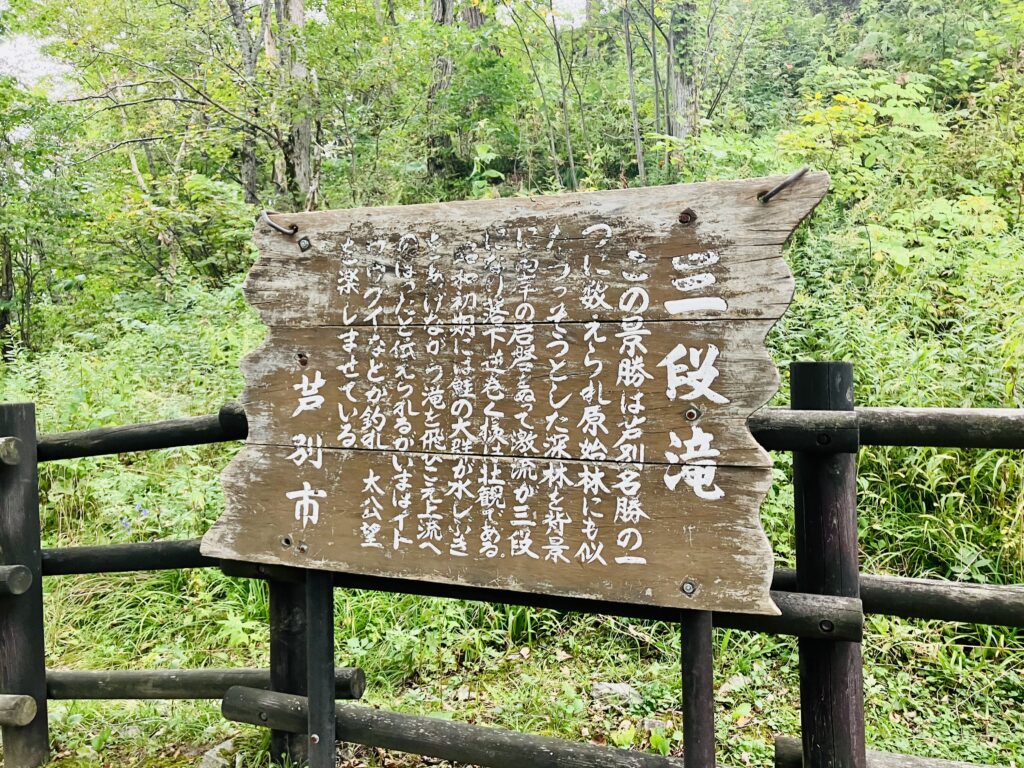 三段滝
この景勝は芦別名勝の一
つに数えられ原始林にも似
たうっそうとした深林を背景
に 岩盤をぬって激流が三段
になり落下逆巻く様は壮観である
昭和初期には鮭の大群が水しぶき
をあげながら滝を飛びこえ上流へ
のぼったと伝えられるがいまはイト
ウ ウグイなどが釣れ 太公望
を楽しませている
芦別市